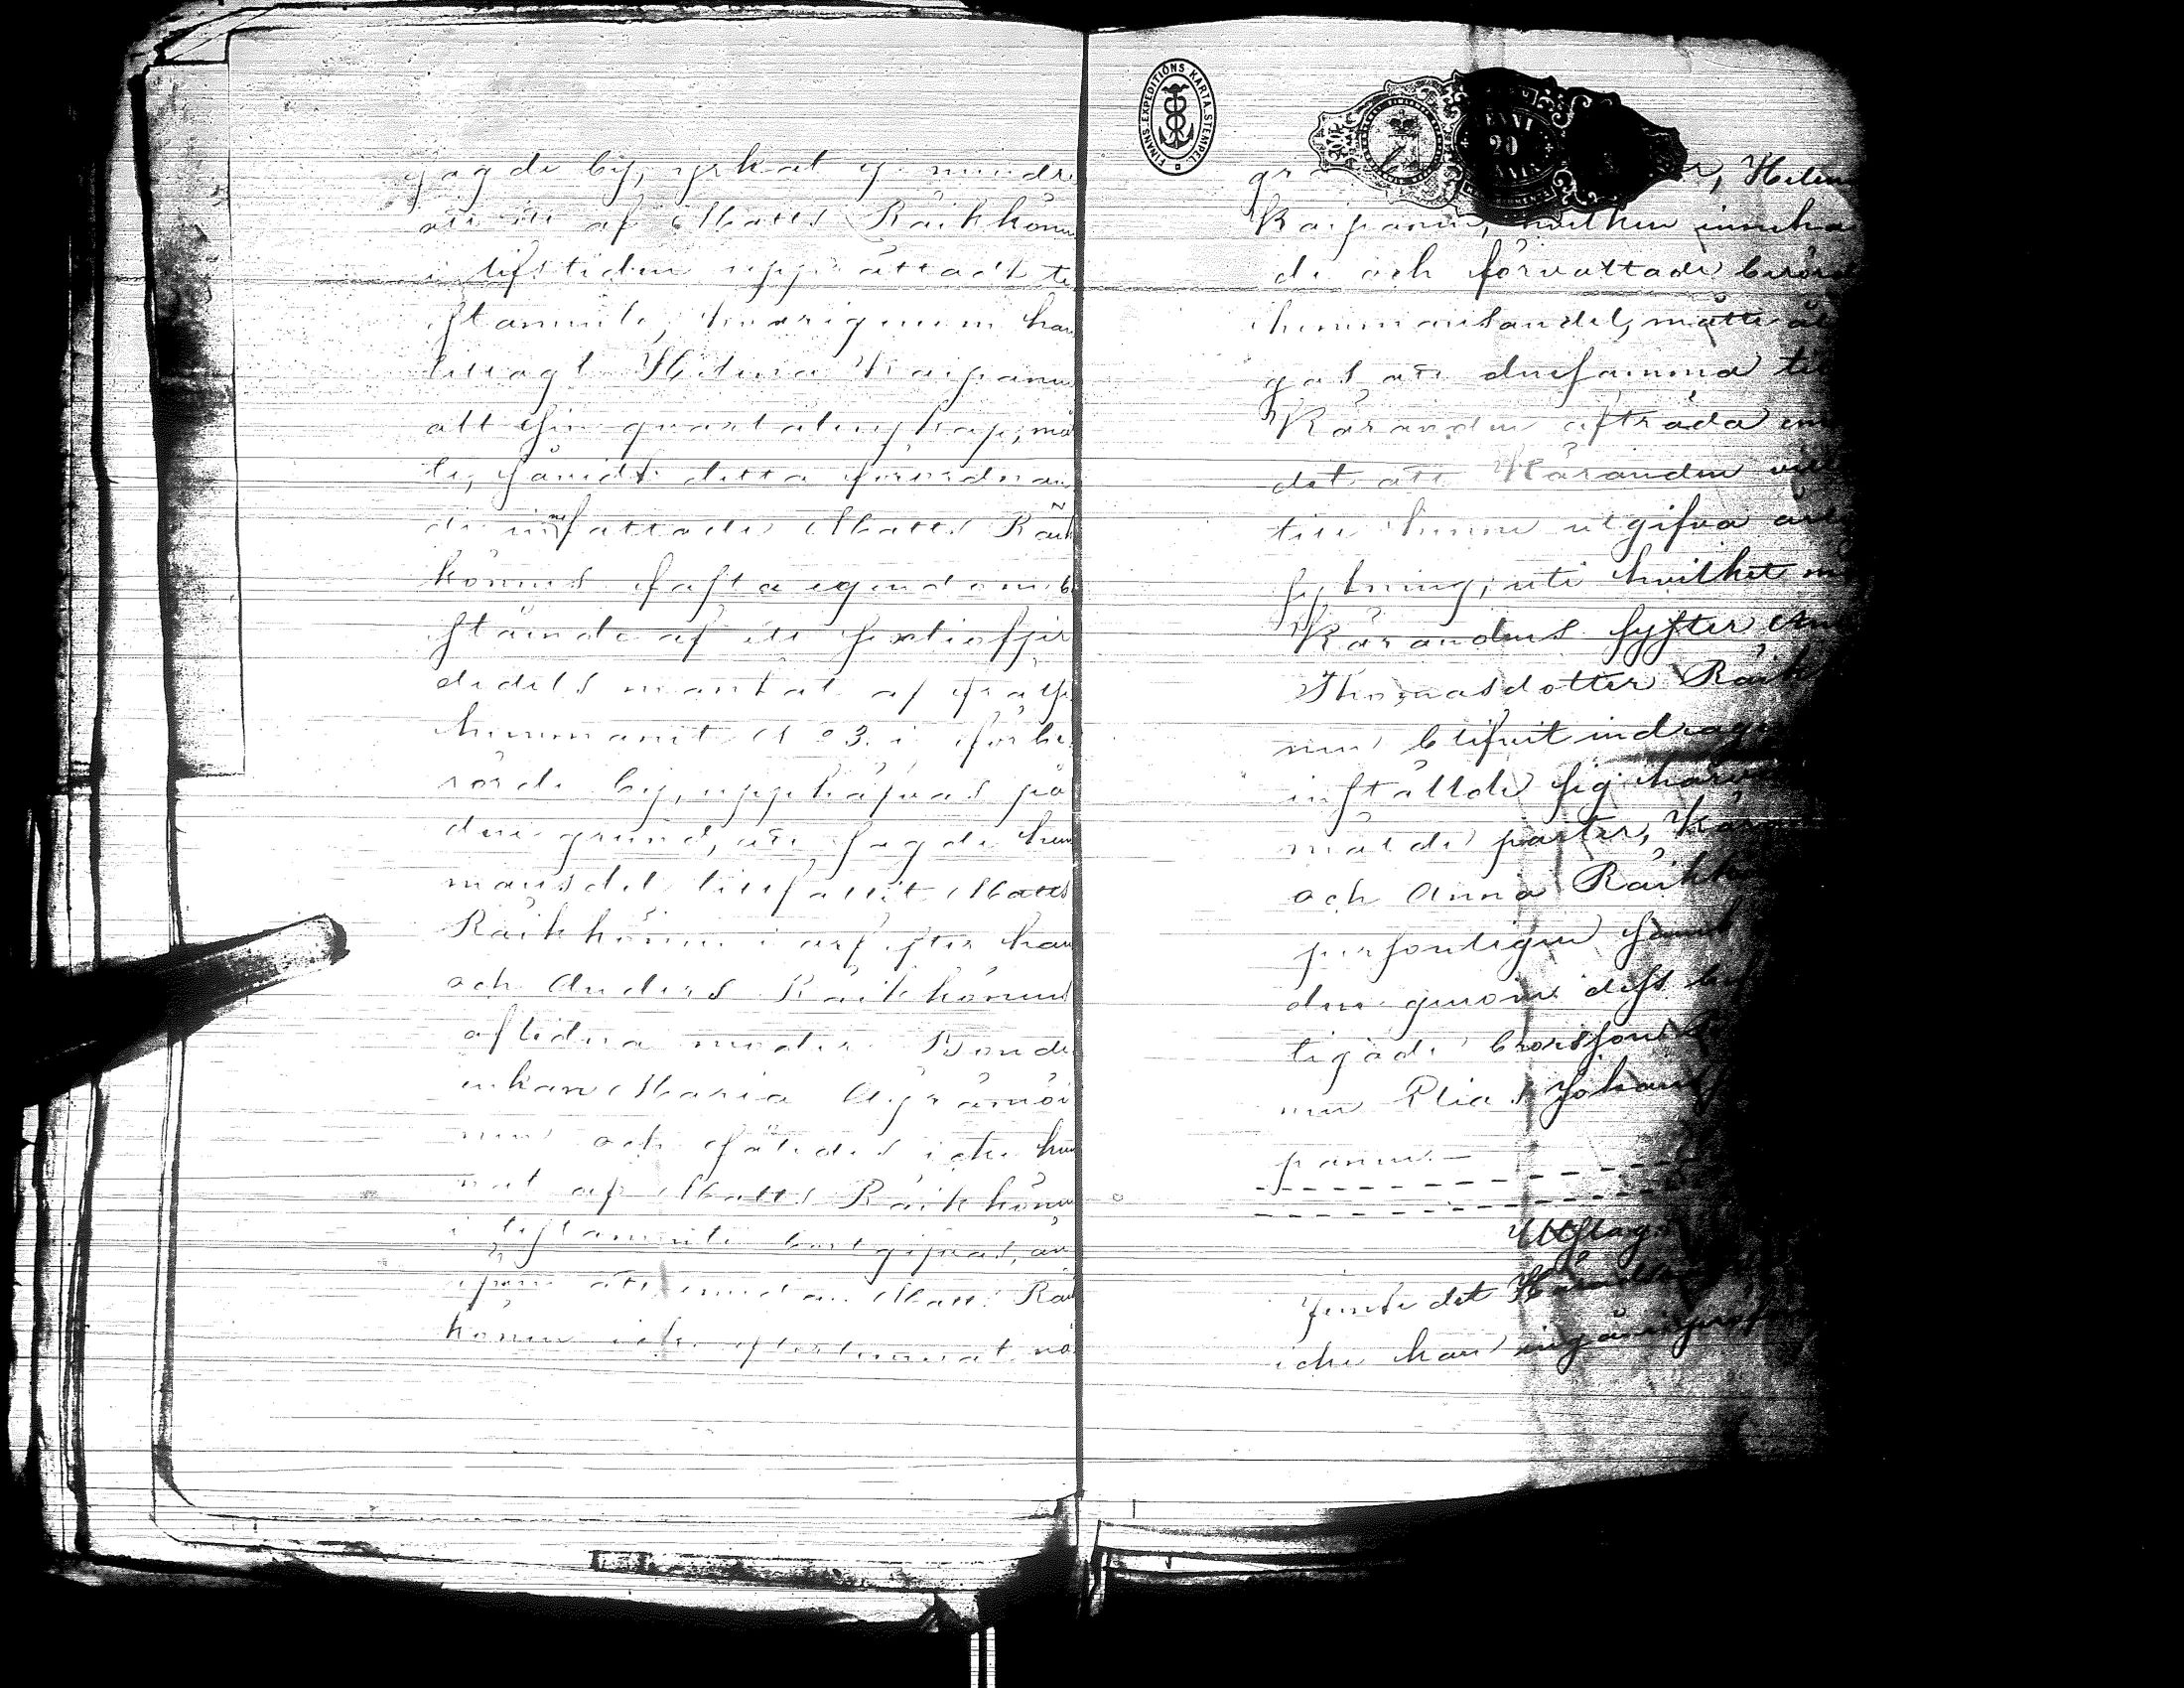 sagde by, yrkat ej mindre
att ett af Matts Räikkönen
i lifstiden upprättadt te
stamente, hvarigenom han
tillagt Helena Kaipanen
all sin qvarlåtenskap, må
te, hvad detta förordnan
de innefattade Matts Räik
könens fasta egendom, be
stående af ett sextiofjer
dedels mantal af skatte
hemmanet No 3 i förbe
rörde by, upphäfvas på
den grund, att sagde hem
mansdel tillfallit Matts
Räikkönen i arf efter hans
och Anders Räikkönens
aflidna moder Bonde
enkan Maria Äyrämöi
nen och således icke kun
nat af Matts Räikkönen
i testamente bortgifvas, än
äfven att, enedan Matts Räi
könen icke efterlemnat nå
FINANS EXPEDITIONS KARTA STEMPEL
PENNI
20
gra Helena
Kaipanen, hvilken inneha
de och förvaltade berörde
hemmansandel, måtte åläg
gas att densamma till
Käranden afträda emot
det att Käranden ville
till henne utgifva
lysning; uti hvilket mål
Kärandens syster Anna
Thomasdotter Räikkö
nen blifvit indragen
inställde sig härvid
mälde parter, Käran
och Anna Räikkö
personligen samt
den genom dess
tigade brorson
nen Elias Johans
panen.—
Utslag:
Jemte det Häradsrätten
icke kan ingå i